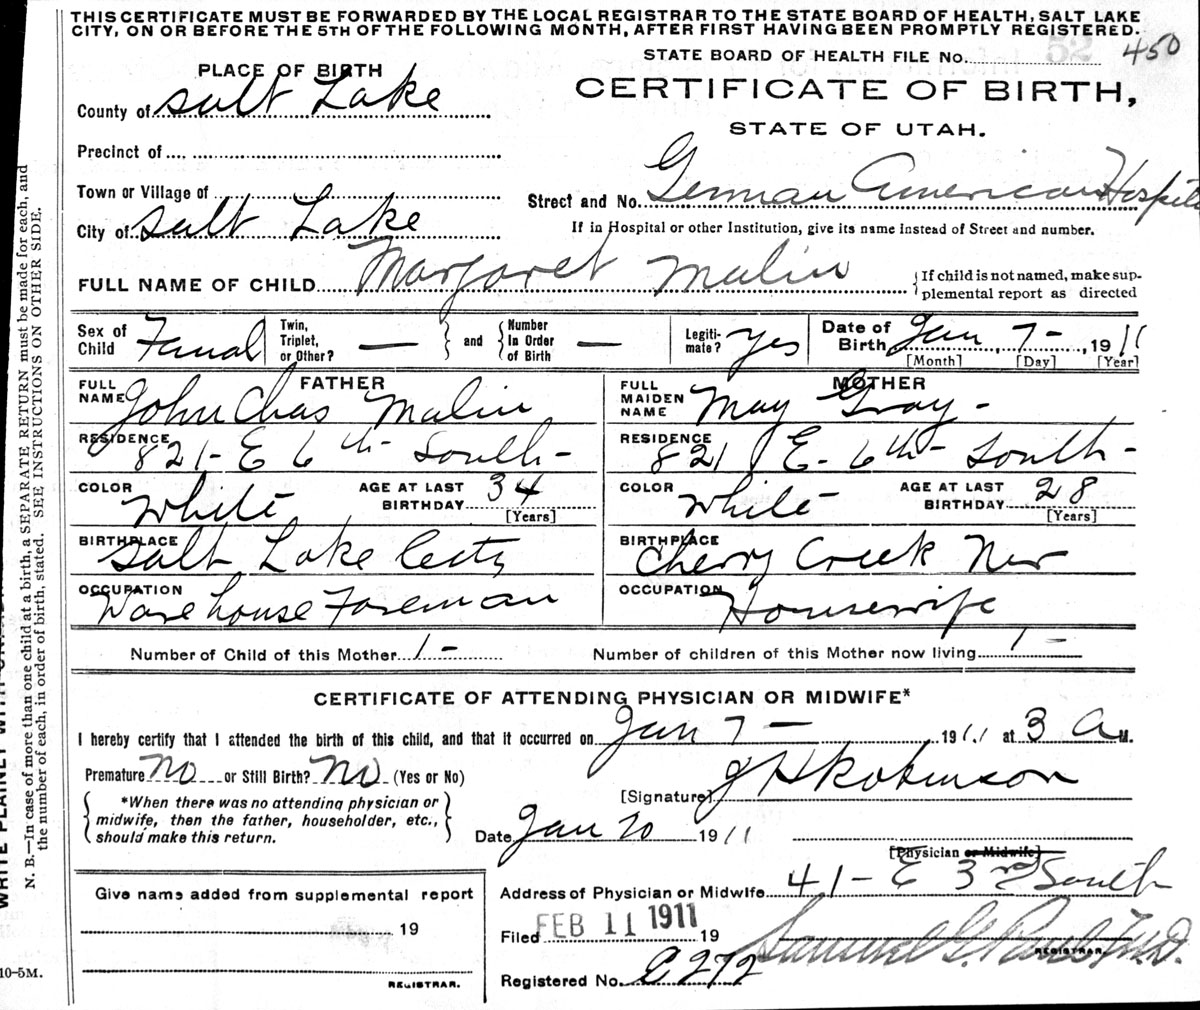 THIS CERTIFICATE MUST BE FORWARDED BY THE LOCAL REGISTRAR TO THE STATE BOARD OF HEALTH, SALT LAKE
CITY, ON OR BEFORE THE 5TH OF THE FOLLOWING MONTH, AFTER FIRST HAVING BEEN PROMPTLY REGISTERED.
STATE BOARD OF HEALTH FILE No. 52 450
PLACE OF BIRTH
CERTIFICATE OF BIRTH,
County of Salt Lake
STATE OF UTAH.
Precinct of
Town or Village of
Street and No. German American Hospital
City of Salt Lake
If in Hospital or other Institution, give its name instead of Street and number.
FULL NAME OF CHILD Margaret Malin {If child is not named, make sup-
plemental report as directed
Sex of Child Femal Twin, Triplet, or Other? — and Number In Order of Birth — Legiti-mate? yes Date of Birth Jan 7 - 1911
[Month] [Day] [Year]
FATHER MOTHER
FULL NAME John Chas Malin FULL MAIDEN NAME May Gray -
RESIDENCE 821- E 6th South - RESIDENCE 821 E- 6th South -
COLOR White AGE AT LAST BIRTHDAY 34 [Years] COLOR White - AGE AT LAST BIRTHDAY 28 [Years]
BIRTHPLACE Salt Lake City BIRTHPLACE Cherry Creek Nev
OCCUPATION Warehouse Foreman OCCUPATION Housewife
Number of Child of this Mother 1 - Number of children of this Mother now living 1 -
CERTIFICATE OF ATTENDING PHYSICIAN OR MIDWIFE*
I hereby certify that I attended the birth of this child, and that it occurred on Jan 7 — 1911 at 3 A M.
Premature No or Still Birth? No (Yes or No)
[Signature] J H Robinson
*When there was no attending physician or
midwife, then the father, householder, etc.,
should make this return.
Date Jan 20 1911
[Physician or Midwife]
Address of Physician or Midwife 41- E 3rd South
Give name added from supplemental report
19
REGISTRAR.
Filed FEB 11 1911 19 Samuel G. Paul M.D.
REGISTRAR.
Registered No. C 272
N. B.—In case of more than one child at a birth, a SEPARATE RETURN must be made for each, and
the number of each, in order of birth, stated. SEE INSTRUCTIONS ON OTHER SIDE.
WRITE PLAINLY WITH
10-5M.